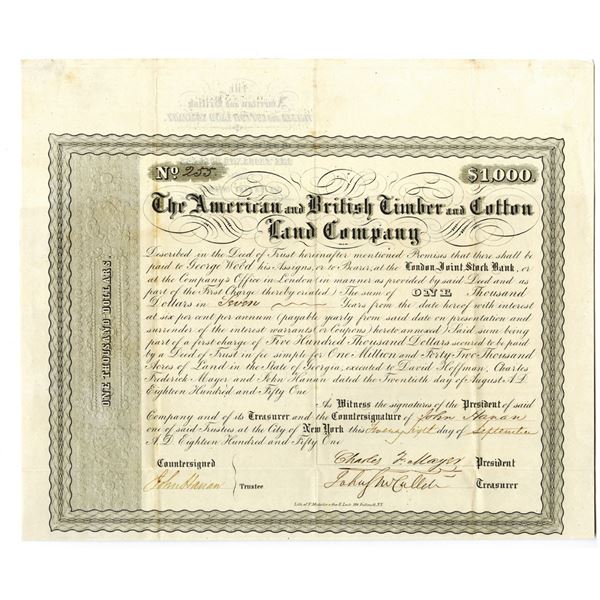 No 255.
$1,000.
The American and British Timber and Cotton
Land Company
Described in the Deed of Trust hereinafter mentioned Promises that there shall be
paid to George Wood his Assigns, or to Bearer, at the London Joint Stock Bank, or
at the Company's Office in London (in manner as provided by said Deed and as
part of the First Charge thereby created) The sum of ONE Thousand
Dollars in Seven Years from the date hereof with interest
at six per cent per annum (payable yearly from said date on presentation and
surrender of the interest warrants (or Coupons) hereto annexed) Said sum being
part of a first charge of Five Hundred Thousand Dollars secured to be paid
by a Deed of Trust in fee simple for One Million and Forty Two Thousand
Acres of Land in the State of Georgia, executed to David Hoffman, Charles
Frederick Mayer and John Hanan dated the Twentieth day of August A.D.
Eighteen Hundred and Fifty One
As Witness the signatures of the President of said
Company and of its Treasurer and the Countersignature of John Hanan
one of said Trustees at the City of New York this twenty eight day of September
A.D. Eighteen Hundred and Fifty One
Countersigned
John Hanan Trustee
Charles F. Mayer President
John McCulloh Treasurer
ONE THOUSAND DOLLARS.